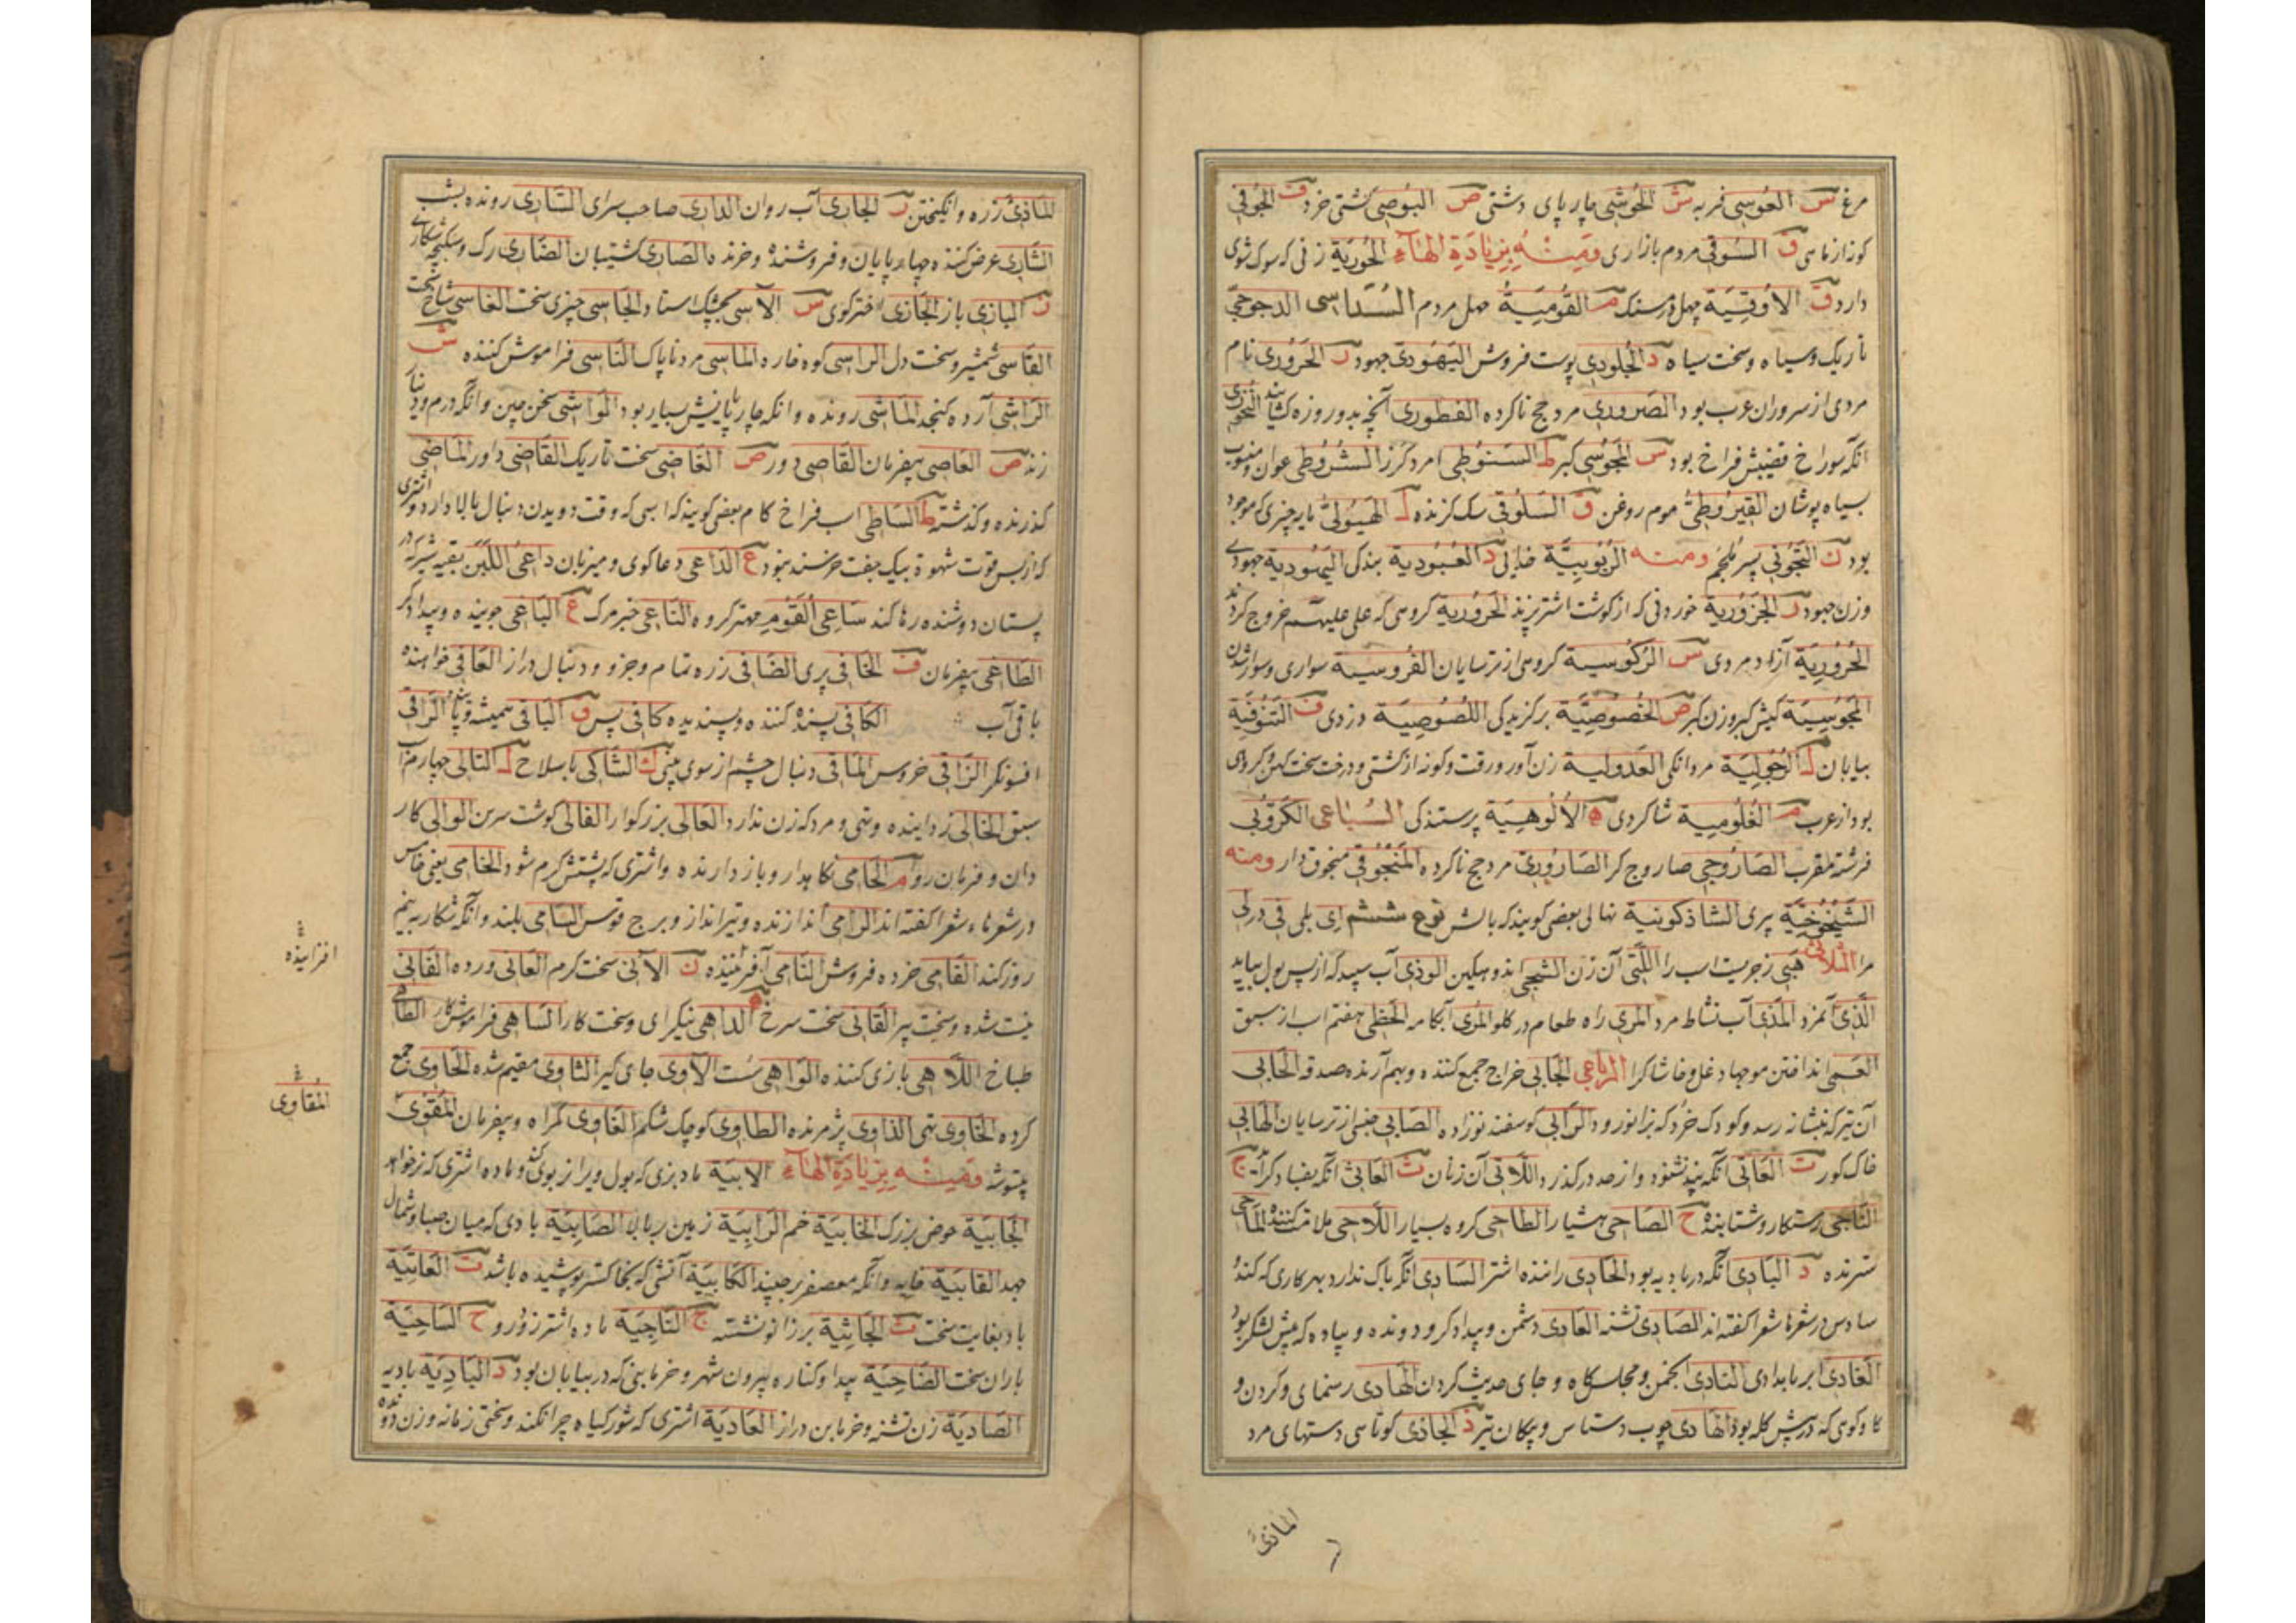 مرغ س العوسی فربه ش الحوشی چارپای دشتی ص البوصی کشتی خرد ف الجوفی
ق السوقی مردم بازاری ومنه بزیادة الهاء الحوریة زنی که
دارد ق الاوقیة چهل درمسنک م القومیة السداسی الدجوجی
تاریک و سیاه و سخت سیاه د الجلودی پوست فروش الیهودی جهود ر الحروری نام
مردی از سروران عرب بود الصروری مرد حج ناکرده الفطوری آنچه بدو روزه کشایند
انکه سوراخ قضیبش فراخ بود س المجوسی کبر ط السنوطی الشروطی عوان و منسوب
سیاه پوشان القیروطی موم روغن ق السلوقی سک کزنده ل الهیولی مایه چیزی که موجود
بود ن ومنه الربوبیة خدایی د العبودیة بندکی الیهودیة جهودی
وزن جهود ر الجزوریة خوردنی که از کوشت اشتر پزند الحروریة کروهی که علی علیهم خروج کردند
الحروریة آزاد مردی س الرکوسیة کروهی از ترسایان الفروسیة سواری و سوار شدن
المجوسیة کیش کبر و زن کبر ص الخصوصیة برکزیدکی اللصوصیة دزدی ف التنوفیة
بیابان ل الرجولیة مردانکی العدولیة
بود از عرب م الغلومیة شاکردی ه الالوهیة پرستندکی السباعی الکروبی
فرشته مقرب الصاروجی صاروج کر الصاروری مرد حج ناکرده المنجوقی منجوق دار ومنه
الشیخوخیة پیری الشاذکونیة نهالی بعضی کویند که بالش نوع ششم ای بلی فی در لی
مرا الثلاثی هبی زجریست اسب را اللتی آن زن الشجی اندوهکین الوذی آب سپید که از پس بول بیاید
الذی آنمرد المذی آب نشاط مرد المری راه طعام در کلو المری آبکامه الحظی هفتم اسب از سبق
العمی انداختن موجها دغل و خاشاک را الرباعی الجابی خراج جمع کننده و بهم آرنده صدقه الحابی
آن تیر که بنشانه رسد و کودک خرد که بزانو رود الرابی کوسفند نوزاده الصابی جنسی از ترسایان الهابی
خاک کور ت العاتی انکه پند نشنود و از حد درکذرد اللاتی آن زنان ث العاثی انکه بفساد کراید ج
الناجی رستکار و شتابنده ح الصاحی هشیار الطاحی کروه بسیار اللاحی ملامت کننده الماحی
سترنده د البادی آنکه در بادیه بود الحادی راننده اشتر السادی آنکه باک ندارد بهر کاری که کند و
سادس در شعرها شعرا کفته اند الصادی تشنه العادی دشمن و بیدادکر و دونده و پیاده که پیش لشکر بود
الغادی ابر بامدادی النادی انجمن و مجلس کاه و جای حدیث کردن الهادی رهنمای و کردن و
کاو کوهی که در پیش کله بود الهادی چوب دستاس و پیکان تیر ذ الجاذی کوتاهی دستهای مرد
الماذی
الماذی زره و انکبین ر الجاری آب روان الداری صاحب سرای الساری رونده بشب
الشاری عرض کننده چهارپایان و فروشنده و خرنده الصاری کشتیبان الضاری رک و سک شکاری
ز البازی باز الجازی س الآسی الجاسی چیزی سخت الغاسی
القاسی شمشیر و سخت دل الراسی کوه الماسی مرد ناپاک الناسی فراموش کننده ش
الراشی آرده کنجد الماشی رونده و انکه چارپایانش بسیار بود الواشی سخن چین و انکه درم و دینار
زند ص العاصی بیفرمان القاصی دور ض الغاضی سخت تاریک القاضی داور الماضی
کذرنده و کذشته ط الساطی اسب فراخ کام بعضی کویند که اسبی که وقت دویدن دنبال بالا دارد و اشتری
که از بس قوت شهوة بیک جفت خرسند نبود ع الداعی دعا کوی و میزبان داعی اللبن بقیه شیر که در
پستان دوشنده رها کند ساعی القوم مهتر کروه الناعی خبر مرک غ الباغی جوینده و بیدادکر
الطاغی بیفرمان ف الخافی پری الضافی زره تمام و جزو و دنبال دراز العافی خواهنده
باقی آب الکافی بسنده کننده و پسندیده کافی پس ق الباقی همیشه الراقی
افسونکر الزاقی خروس الماقی دنبال چشم از سوی بینی ک الشاکی با سلاح ل التالی چهارم اسب
سبق الخالی زداینده و تهی و مرد که زن ندارد العالی بزرکوار الفالی کوشت سرین الوالی کار
دان و فرمان روا م الحامی نکاهدار و بازدارنده و اشتری که پشتش کرم شود الخامی یعنی خامس
در شعرها شعرا کفته اند الرامی اندازنده و تیرانداز و برج قوس السامی بلند و انکه شکار به نیم
روز کند القامی خرده فروش النامی آفریننده ن الآنی سخت کرم العانی ورده الفانی
نیست شده و سخت پیر القانی سخت سرخ ه الداهی نیک رای و سخت کار الساهی فراموش کار الطاهی
طباخ اللاهی بازی کننده الواهی سست الآوی جای کیر الثاوی مقیم شده الحاوی جمع
کرده الخاوی تهی الذاوی پژمرنده الطاوی کوچک شکم الغاوی کمراه و بیفرمان المقوی
بیتوشه ومنه بزیادة الهاء الابیة ماده بزی که بول ویرا زبوی کند و ماده اشتری که نر خواهد
الجابیة حوض بزرک الخابیة خم الرابیة زمین بربالا الصابیة بادی که میان صبا و شمال
جهد القابیة خایه و انکه معصفر برچیند الکابیة آتشی که بخاکستر پوشیده باشد ت العاتیة
باد بغایت سخت ث الجاثیة برزانو نشسته ج الناجیة ماده اشتر زودرو ح الساحیة
باران سخت الضاحیة پیدا و کناره بیرون شهر و خرمابنی که در بیابان بود د البادیة بادیه
الصادیة زن تشنه و خرمابن دراز العادیة اشتری که شور کیاه چرا نکند و سختی زمانه و زن دونده
افزاینده
المقاوی